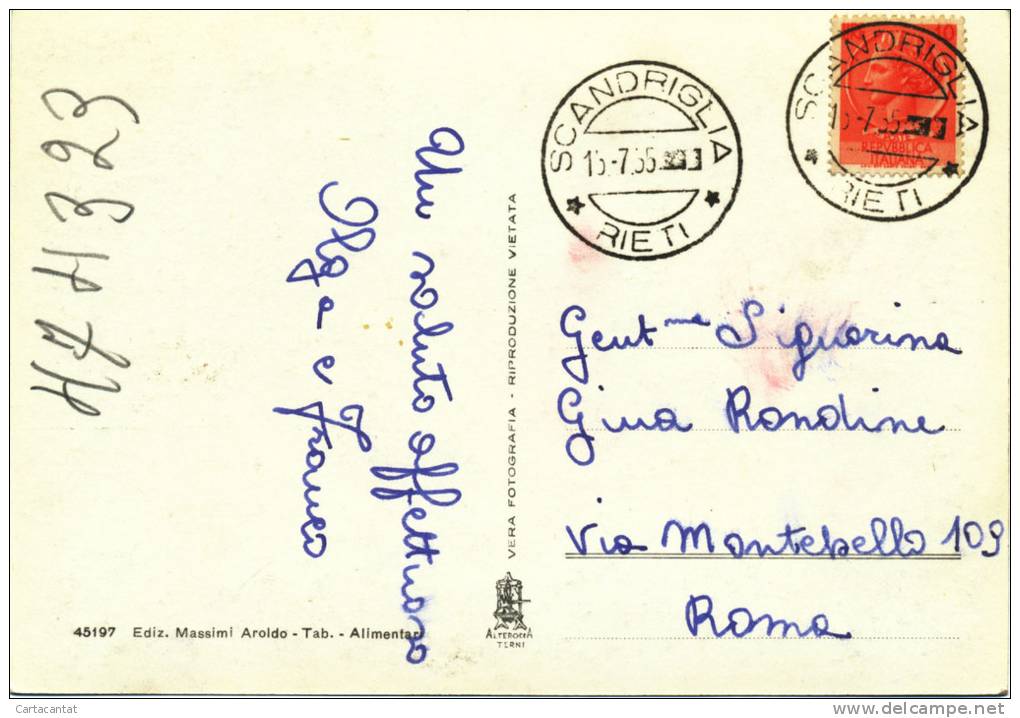 H7H323
Un saluto affettuoso
Olga e Franco
45197 Ediz. Massimi Aroldo - Tab. - Alimentari
VERA FOTOGRAFIA - RIPRODUZIONE VIETATA
ALTEROCCA
TERNI
SCANDRIGLIA
15.-7.55
RIETI
SCANDRIGLIA
15-7.55
RIETI
10
POSTE
REPVBBLICA
ITALIANA
Gent.ma Signorina
Gina Rondine
Via Montebello 109
Roma
Cartacantat
delcampe.net